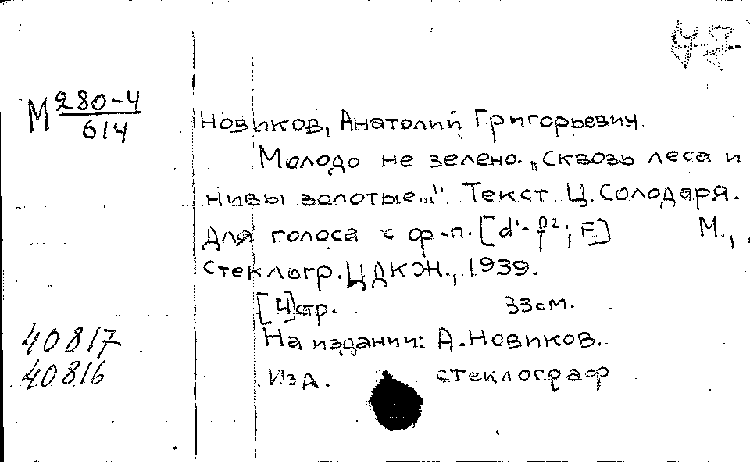 М 280-4
614
Новиков, Анатолий Григорьевич.
Молодо не зелено. „Сквозь леса и
нивы золотые..." Текст Ц. Солодаря.
Для голоса с ф-п. [d¹-f²; F] М.,
стеклогр. ЦДКЖ., 1939.
[4]стр. 33см.
40817 На издании: А. Новиков.
40816 Изд. стеклограф